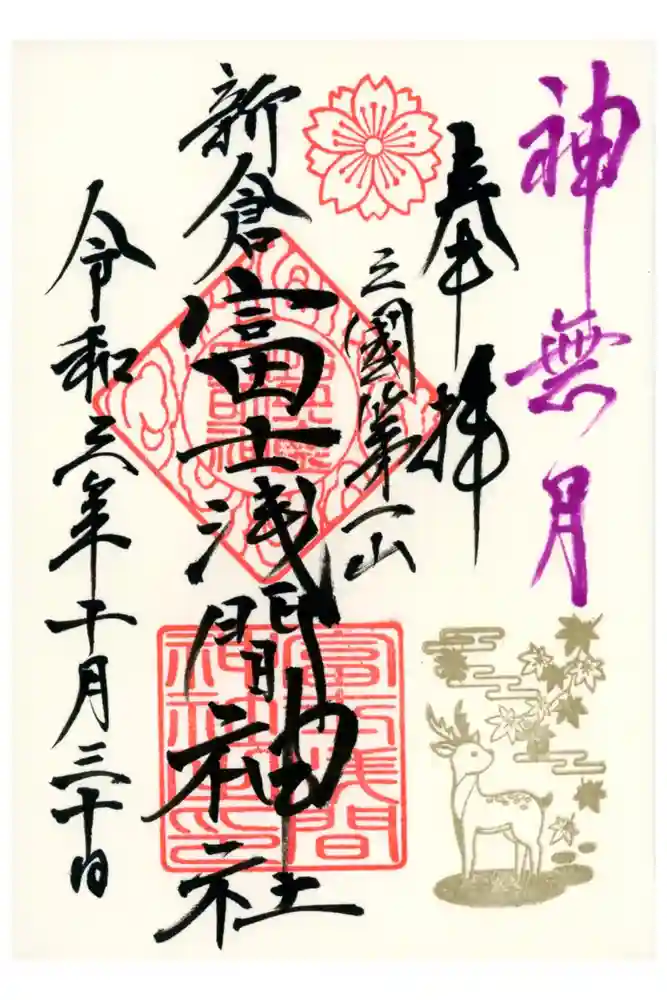 神無月
奉拝
三國第一山
新倉富士浅間神社
令和三年十月三十日
富士浅間
神社之印